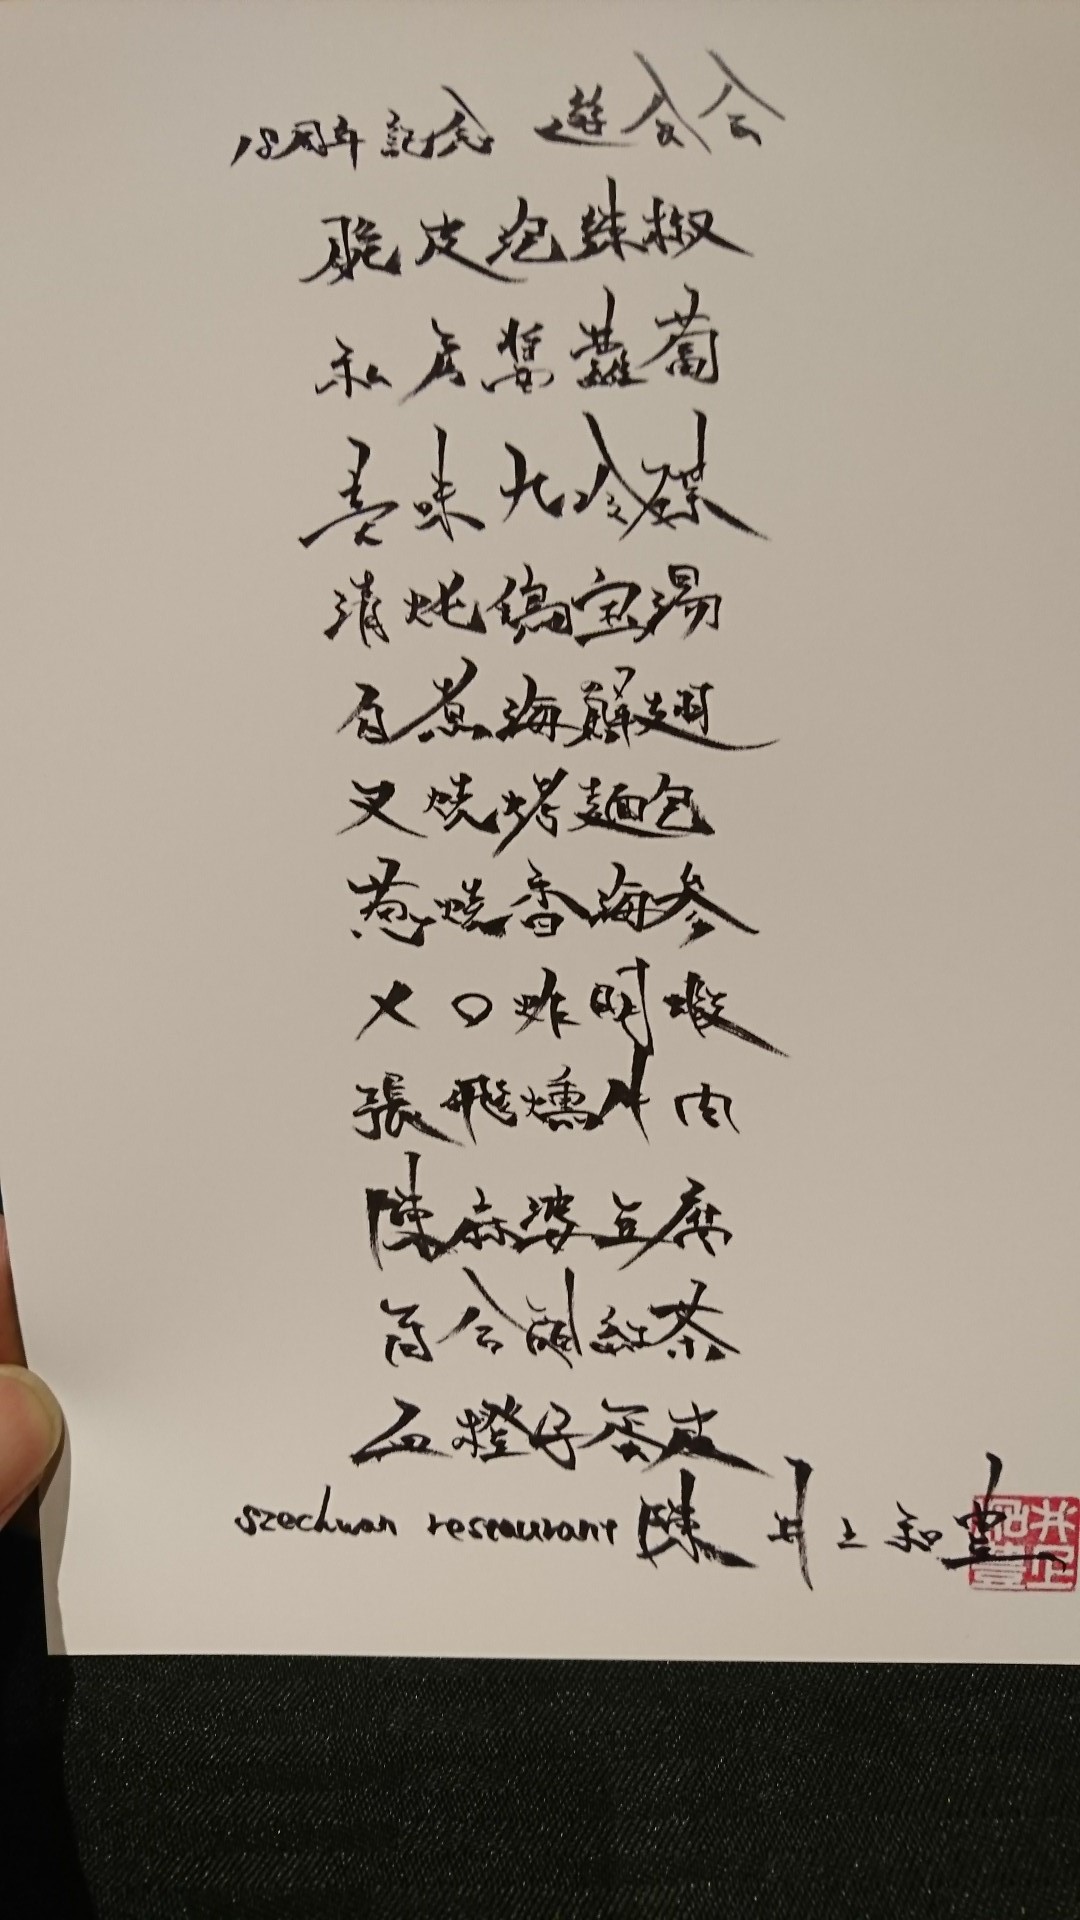 18周年記念 遊食会
脆皮泡辣椒
私房醤蘿蔔
美味九冷碟
清炖鍋宝湯
白煮海鮮翅
叉焼烤麺包
葱焼香海参
入口炸明蝦
張飛燻牛肉
陳麻婆豆腐
百合 紅茶
血橙子蛋皮
szechwan restaurant 陳 井上和豊
井上和豊